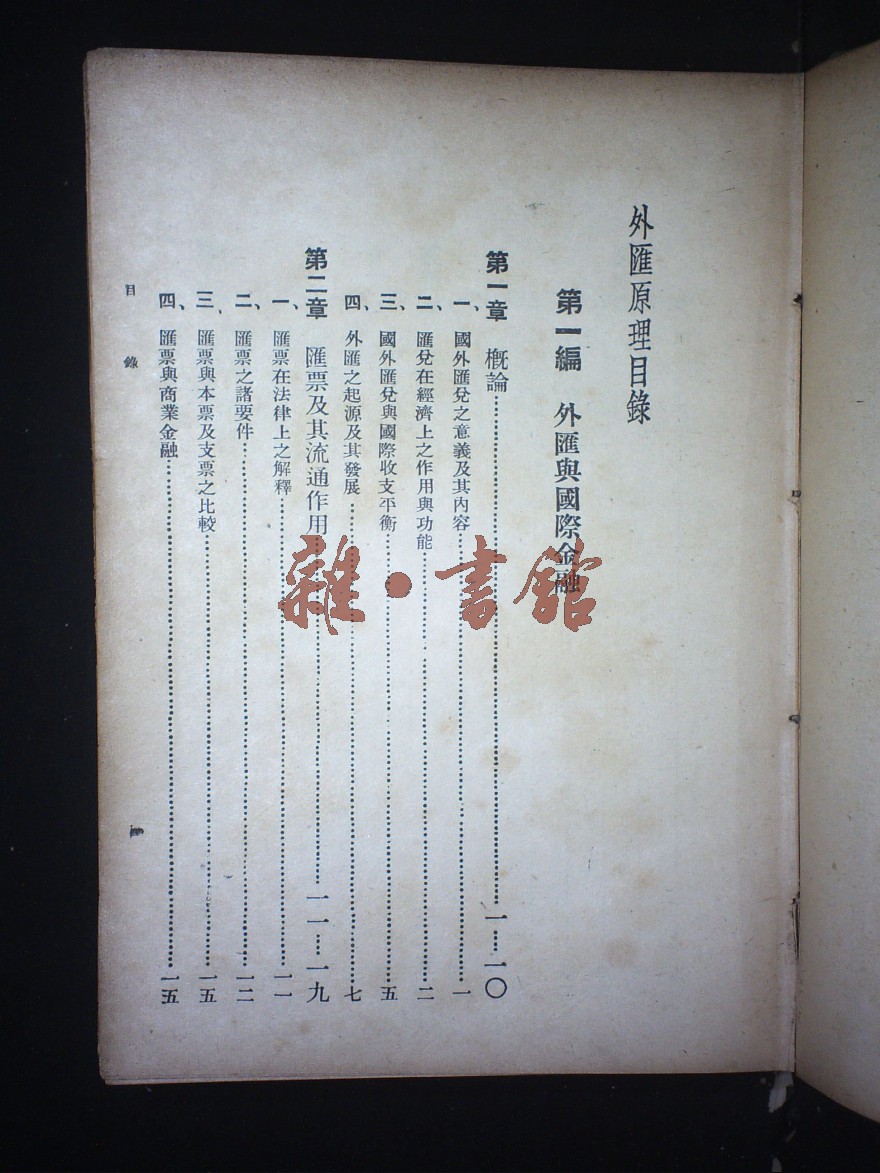 外匯原理目錄
第一編　外匯與國際金融
第一章　概論……一…一〇
一、國外匯兌之意義及其內容……一
二、匯兌在經濟上之作用與功能……二
三、國外匯兌與國際收支平衡……五
四、外匯之起源及其發展……七
第二章　匯票及其流通作用……一一…一九
一、匯票在法律上之解釋……一一
二、匯票之諸要件……一二
三、匯票與本票及支票之比較……一五
四、匯票與商業金融……一五
目錄
雜·書館